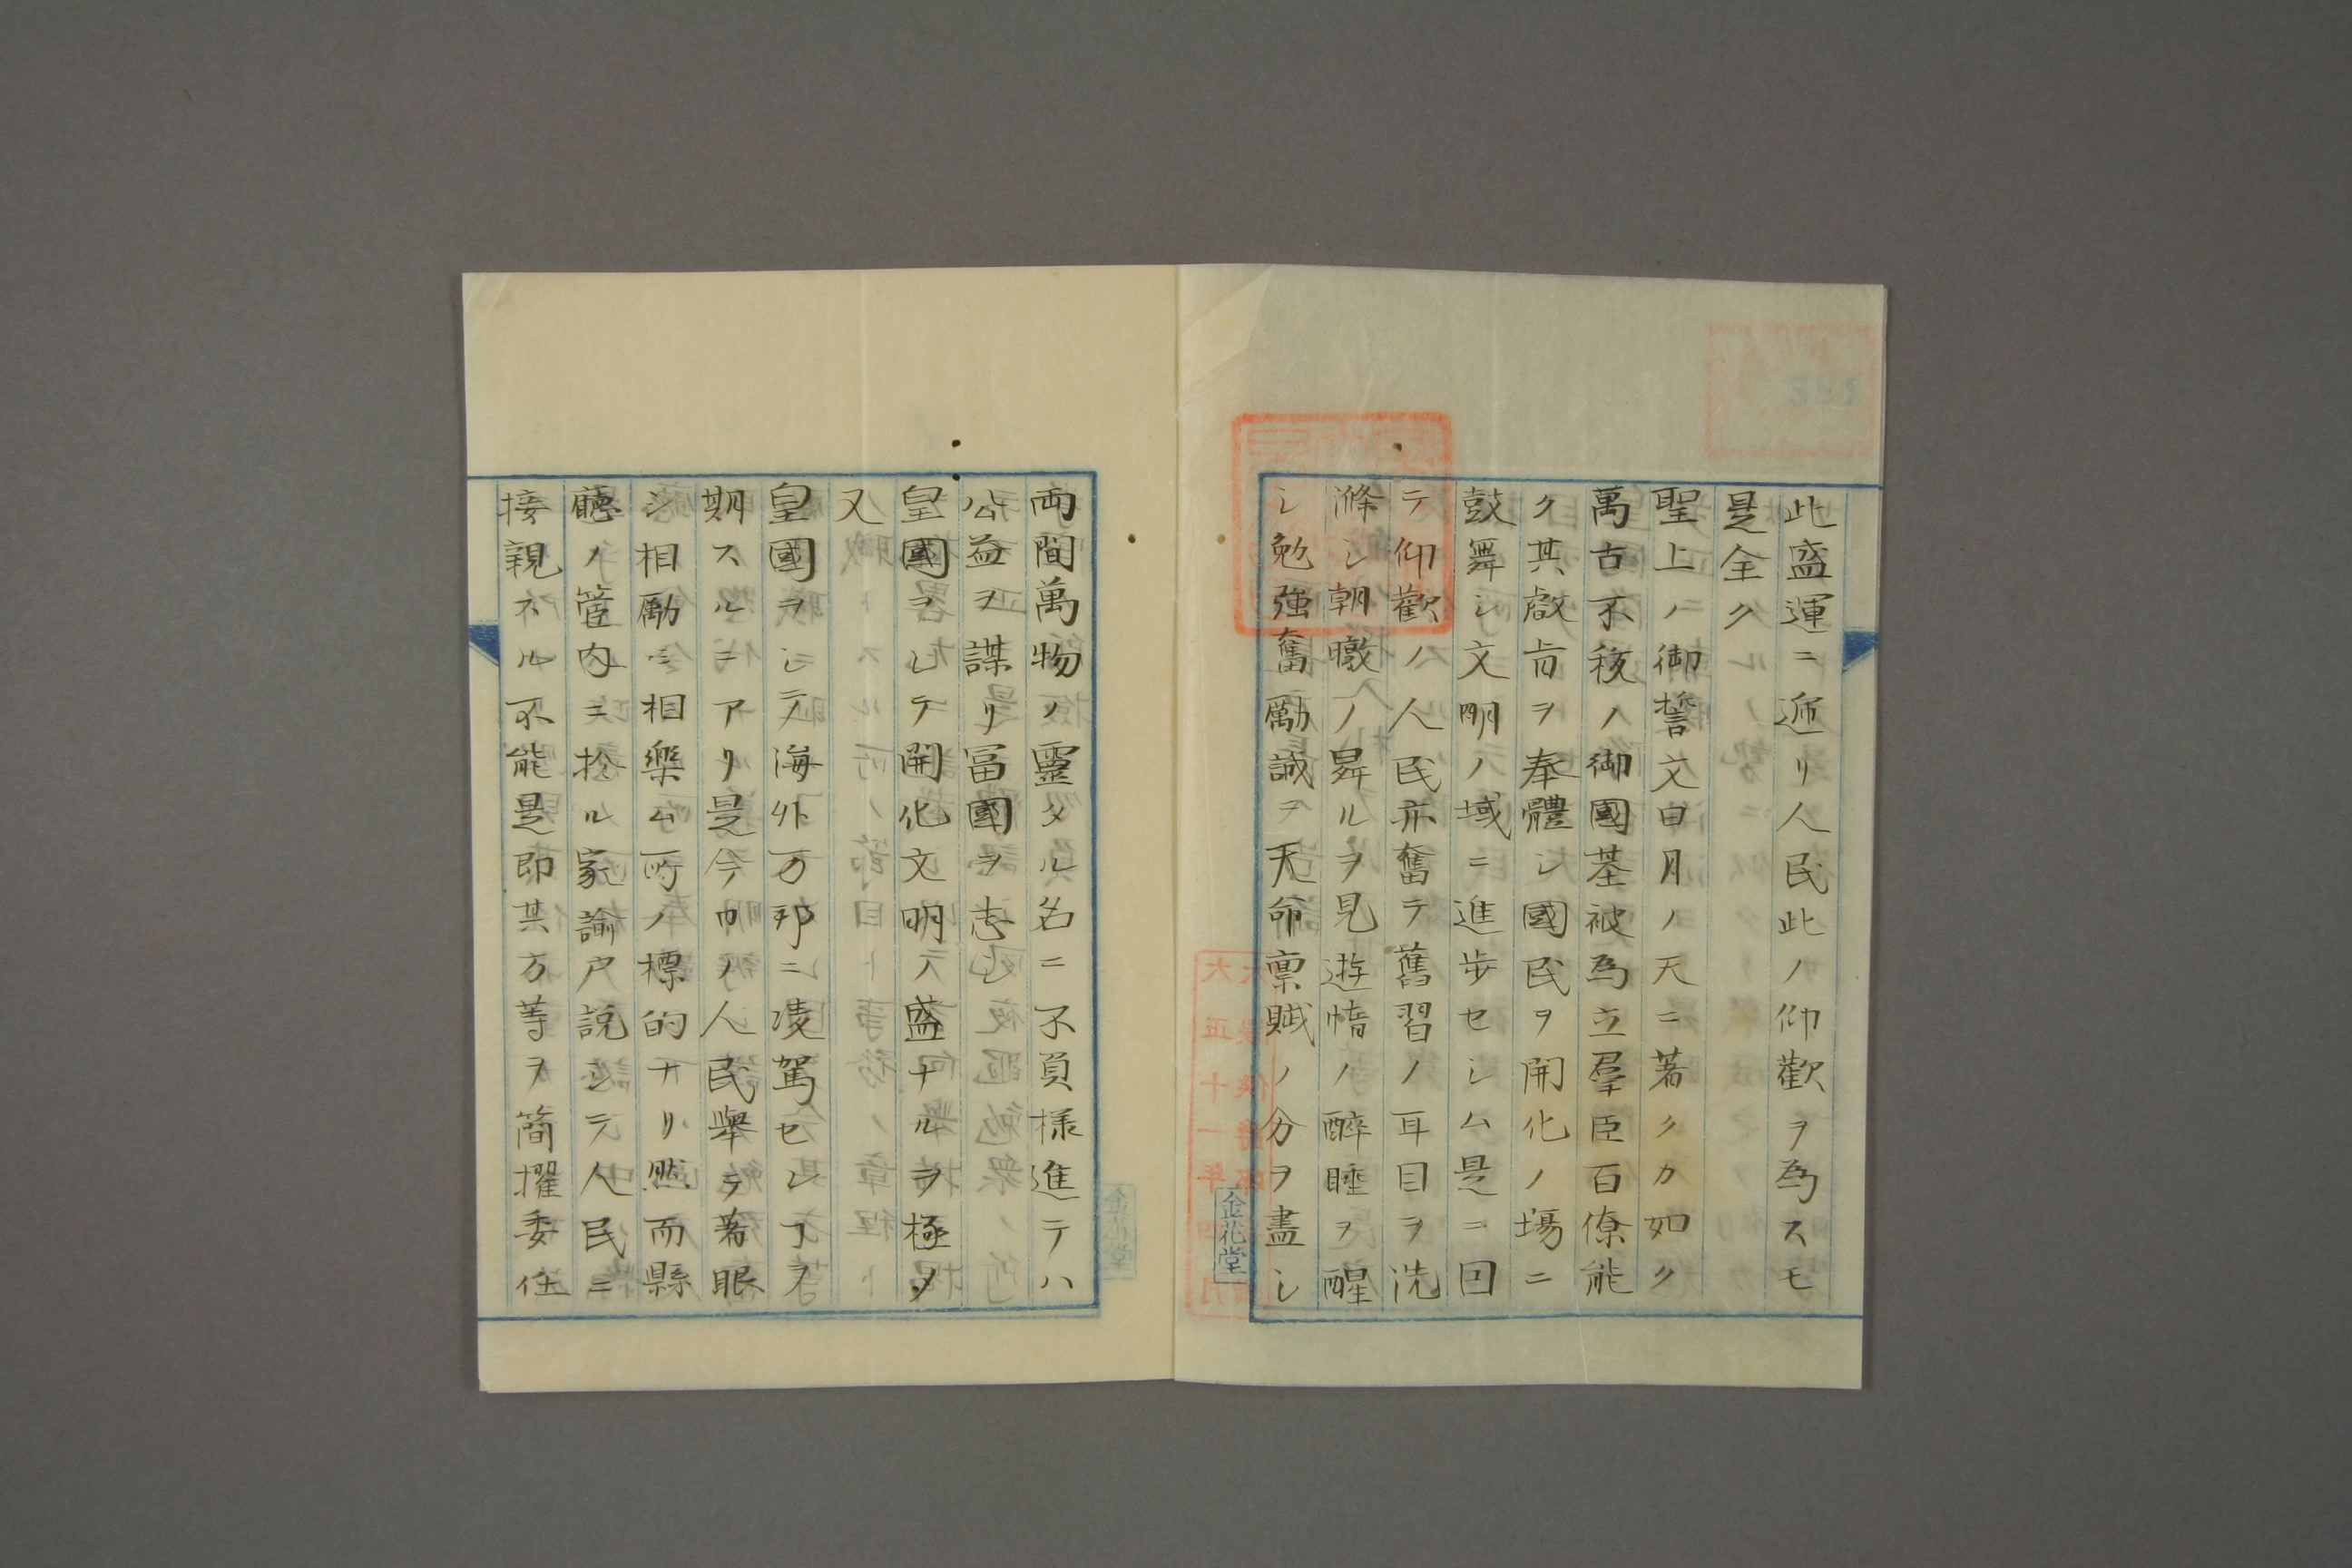 此盛運ニ遞リ人民此ノ仰歡ヲ為スモ
是全ク
聖上ノ御誓文日月ノ天ニ著クカ如ク
萬古不移ノ御國基被為立羣臣百僚能
ク其啟旨ヲ奉體シ國民ヲ開化ノ場ニ
鼓舞シ文明ノ域ニ進歩セシム是ニ回
テ仰歡ノ人民亦奮テ舊習ノ耳目ヲ洗
滌シ朝暾ノ昇ルヲ見遊惰ノ醉睡ヲ醒
シ勉強奮勵誠ヲ天命禀賦ノ分ヲ盡シ
金花堂
両間萬物ノ靈タル名ニ不負様進テハ
公益ヲ謀リ冨國ヲ志シ
皇國ヲシテ開化文明ノ盛ナルヲ極メ
又
皇國ヲシテ海外万邦ニ凌駕セシヿヲ
期スルニアリ是今日ノ人民舉テ著眼
シ相勵ミ相樂ム所ノ標的ナリ然而縣
廳ノ管内ニ於ル家諭戸説シテ人民ニ
接親スル不能是即其方等ヲ簡擢委任